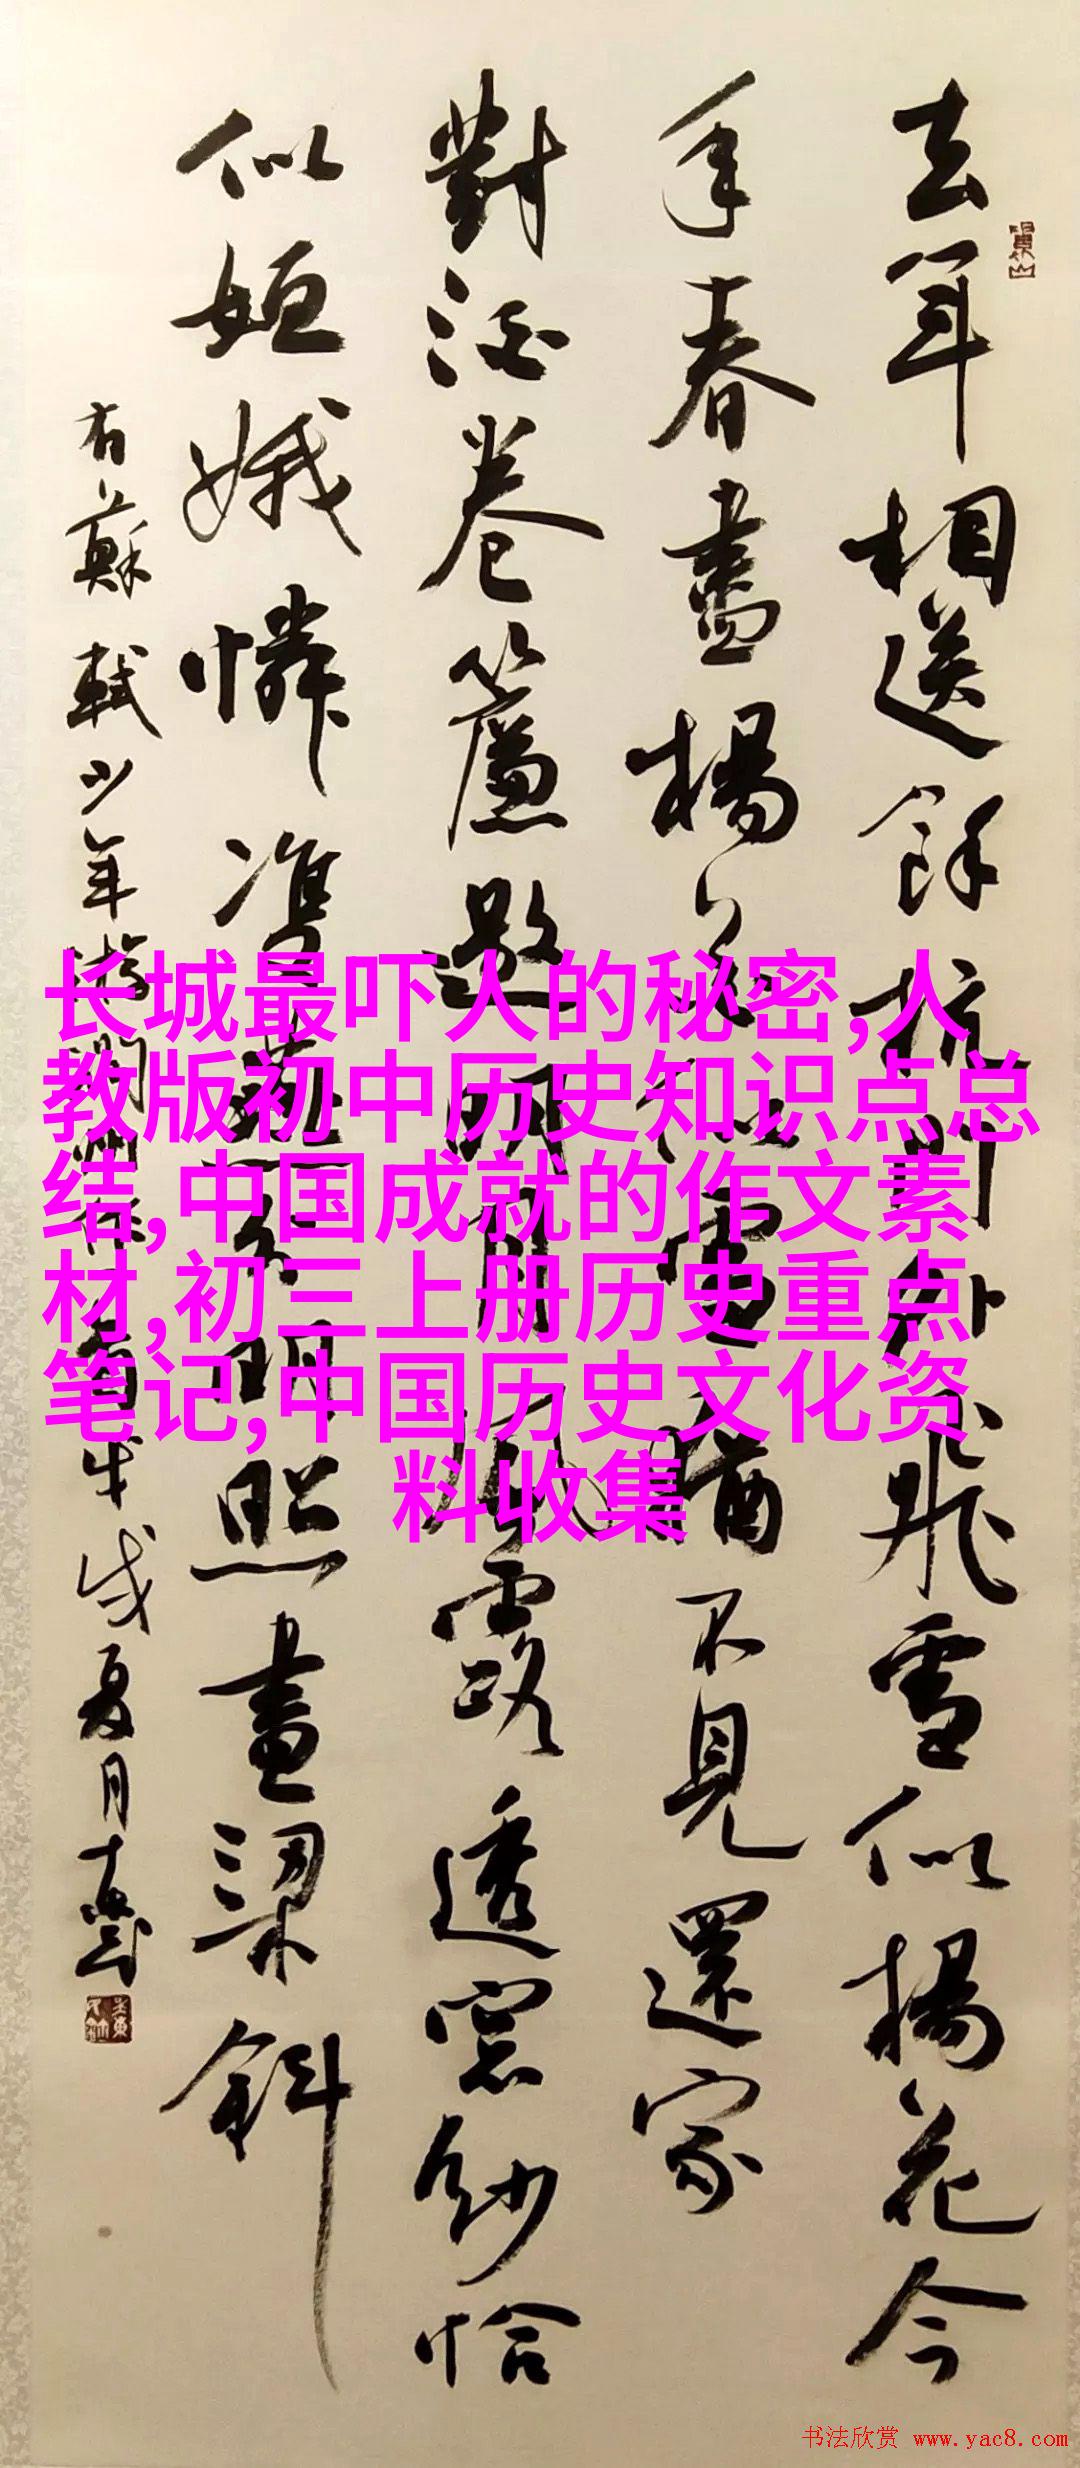 去年相送餘杭門外飛雪似楊花今
年春盡楊花似雪猶不見還家
對酒卷簾邀明月風露透窗紗恰
似姮娥憐雙燕分明照畫梁斜
右蘇軾少年游潤州作戌夏月
长城最吓人的秘密,人
教版初中历史知识点总
结,中国成就的作文素
材,初三上册历史重点
笔记,中国历史文化资
料收集
书法欣赏 www.yac8.com